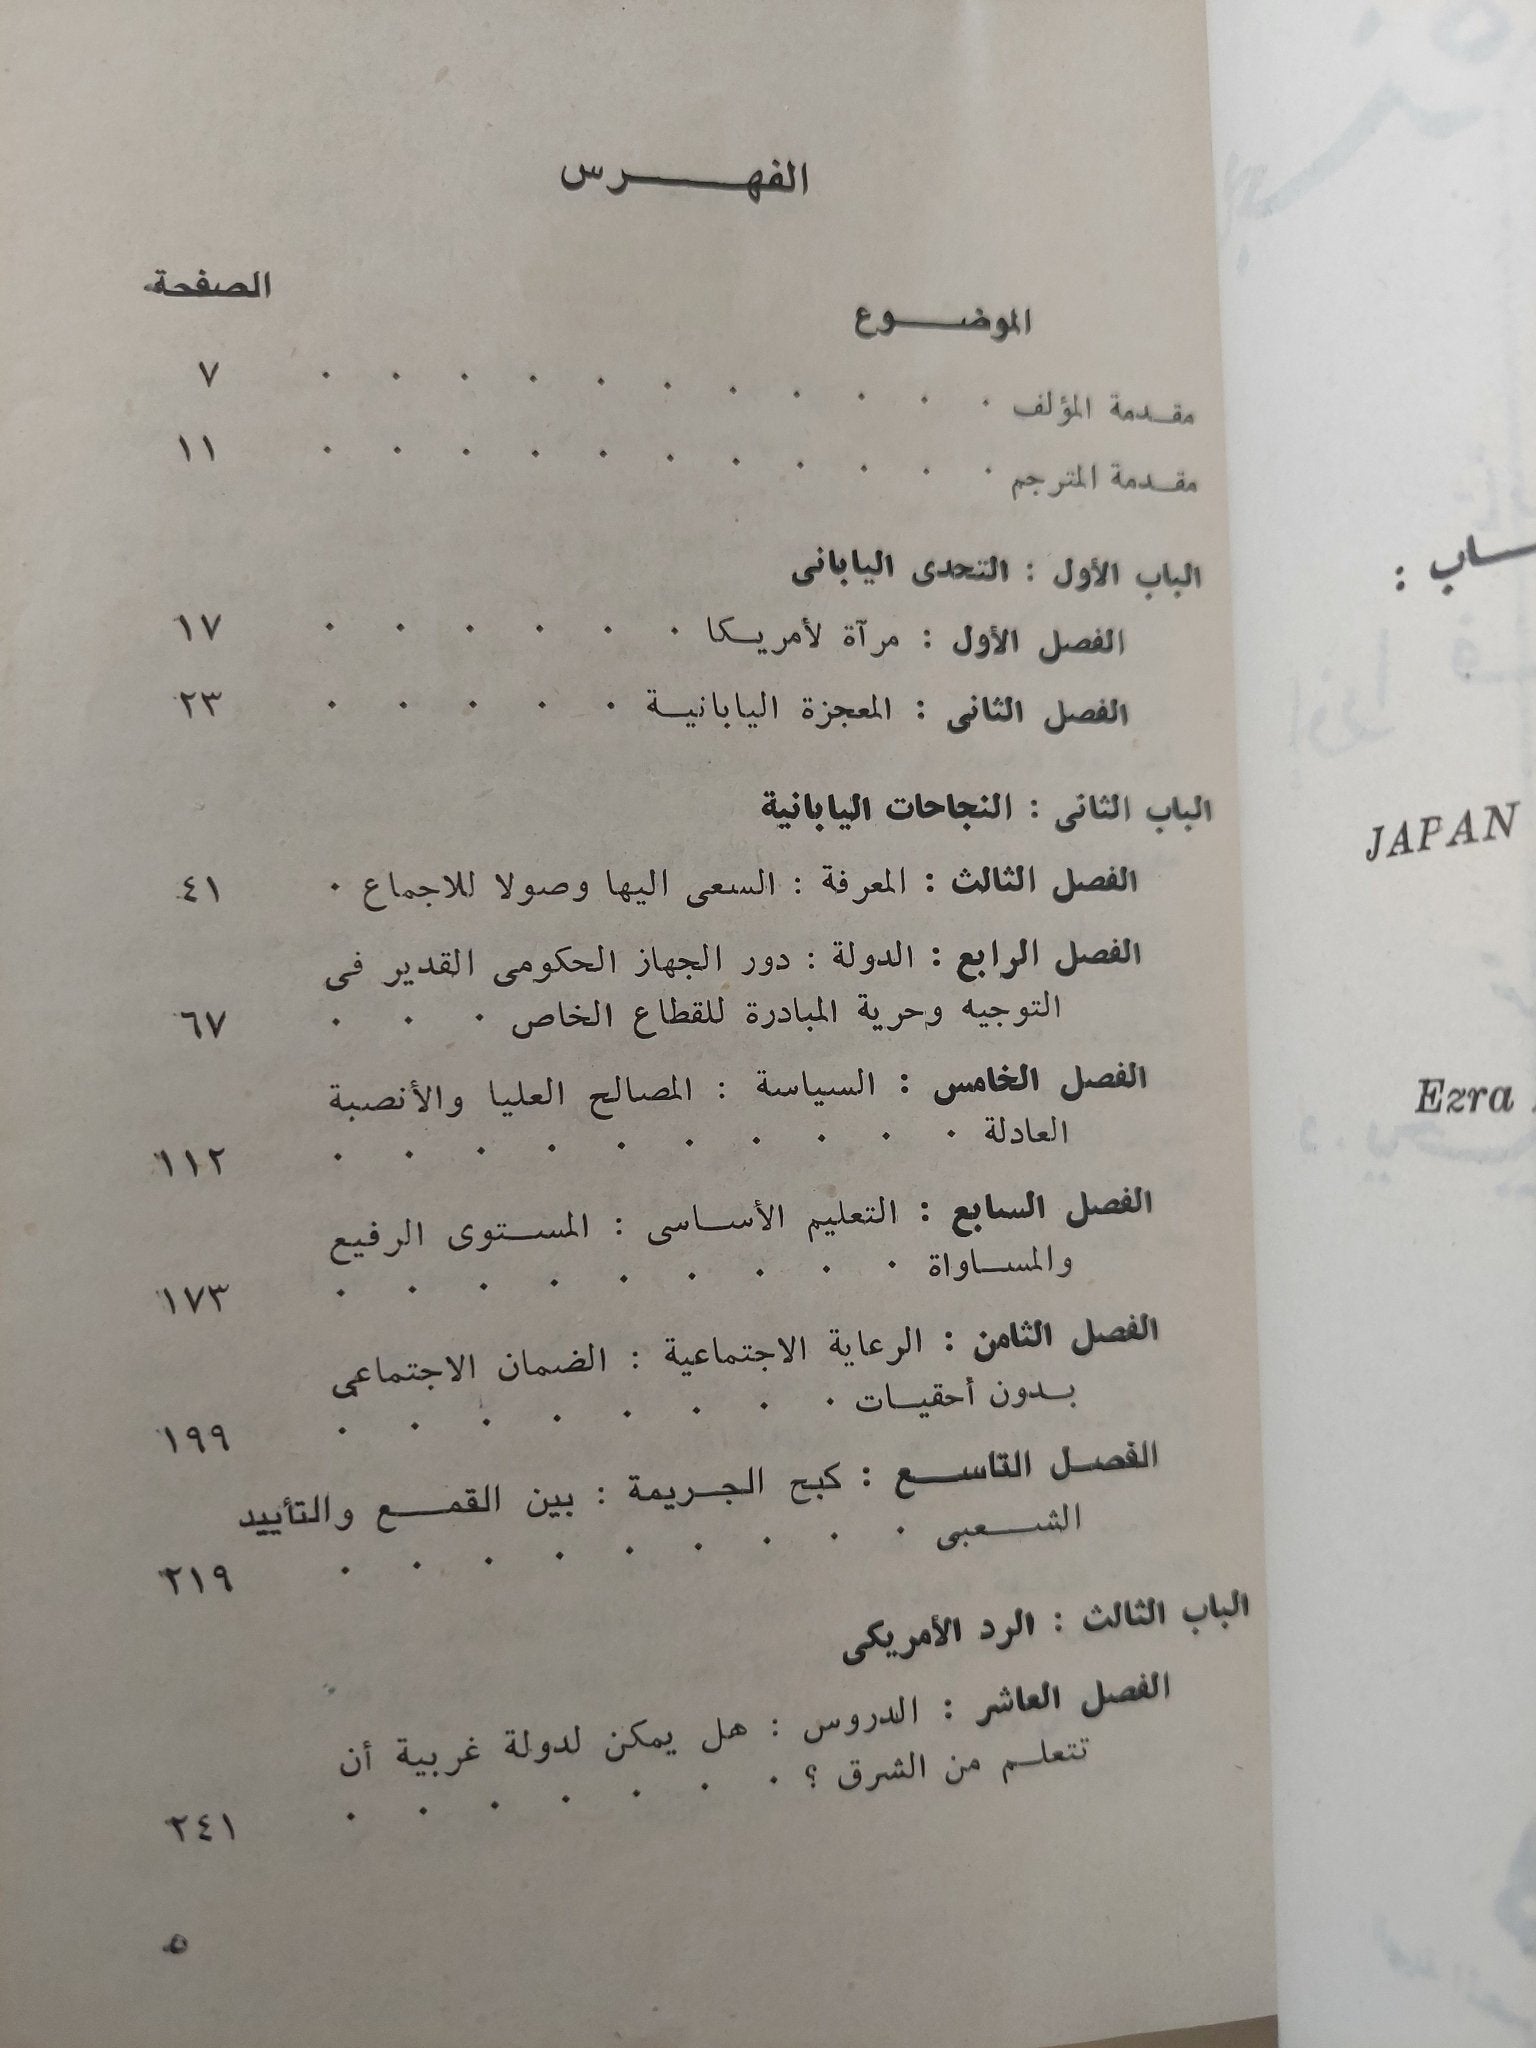 الفهرس
الموضوع الصفحة
مقدمة المؤلف . . . . . . . . . . . ٧
مقدمة المترجم . . . . . . . . . . . ١١
الباب الأول : التحدى اليابانى
الفصل الأول : مرآة لأمريكا . . . . . . ١٧
الفصل الثانى : المعجزة اليابانية . . . . . ٢٣
الباب الثانى : النجاحات اليابانية
الفصل الثالث : المعرفة : السعى اليها وصولا للاجماع . ٤١
الفصل الرابع : الدولة : دور الجهاز الحكومى القدير فى
التوجيه وحرية المبادرة للقطاع الخاص . . . ٦٧
الفصل الخامس : السياسة : المصالح العليا والأنصبة
العادلة . . . . . . . . . . ١١٢
الفصل السابع : التعليم الأساسى : المستوى الرفيع
والمساواة . . . . . . . . . ١٧٣
الفصل الثامن : الرعاية الاجتماعية : الضمان الاجتماعى
بدون أحقيات . . . . . . . . ١٩٩
الفصل التاسع : كبح الجريمة : بين القمع والتأييد
الشعبى . . . . . . . . . ٢١٩
الباب الثالث : الرد الأمريكى
الفصل العاشر : الدروس : هل يمكن لدولة غربية أن
تتعلم من الشرق ؟ . . . . . . . ٢٤١
٥
JAPAN
Ezra